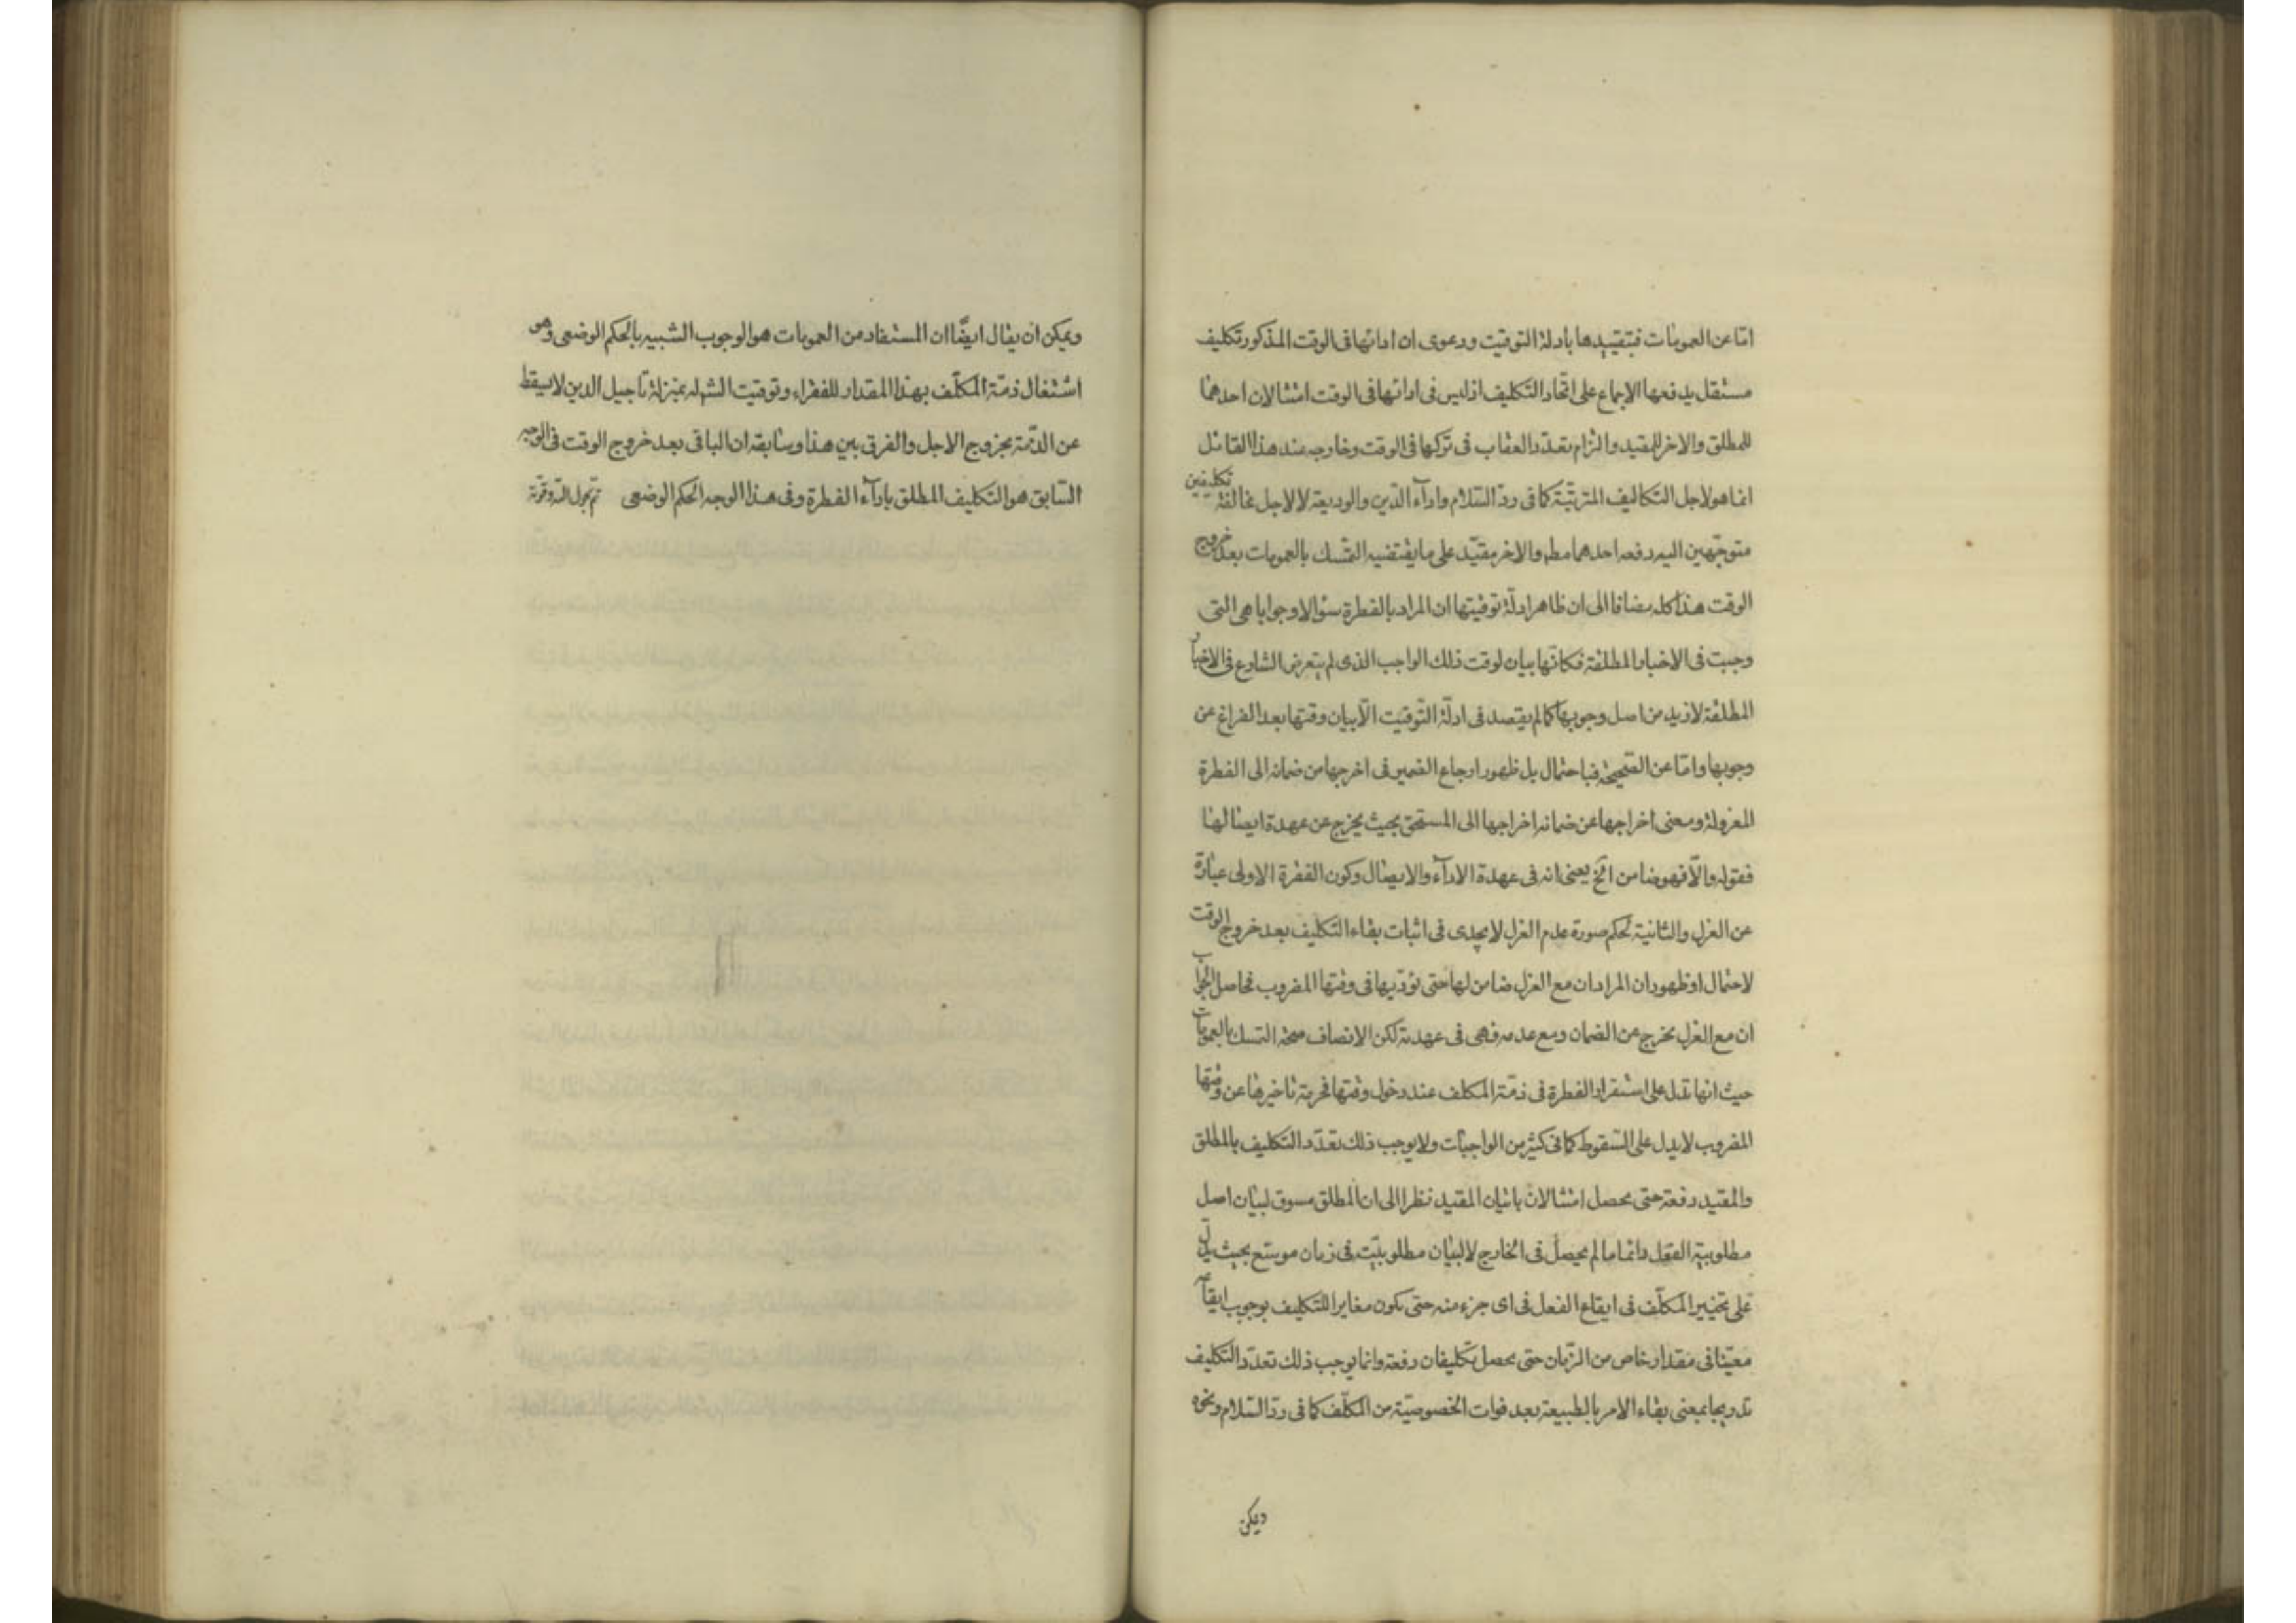 امّا عن العمومات فبتقييدها بادلة التوقيت ودعوى ان ادائها فى الوقت المذكور تكليف
مستقل يدفعها الاجماع على اتّحاد التكليف اذ ليس فى ادائها فى الوقت امتثالان احدهما
للمطلق والاخر للمقيد والتزام بتعدّد العقاب فى تركها فى الوقت وخارجه عند هذا القائل
انما هو لاجل التكاليف المترتّبة كما فى ردّ السّلام واداۤء الدّين والوديعة لا لاجل مخالفة تكليفين
متوجّهين اليه دفعه احدهما مطم والاخر مقيّد على ما يقتضيه التمّسك بالعمومات بعد خروج
الوقت هذا كله مضافا الى ان ظاهر ادلّة توقيتها ان المراد بالفطرة سؤالا وجوابا هى التى
وجبت فى الاخبار المطلقة فكانّها بيان لوقت ذلك الواجب الذى لم يتعرض الشارع فى الاخبار
المطلقة لازيد من اصل وجوبها كما لم يقصد فى ادلّة التّوقيت الّا بيان وقتها بعد الفراغ عن
وجوبها وامّا عن الصّحيحة فباحتمال بل ظهور ارجاع الضمير فى اخرجها من ضمانه الى الفطرة
المعزولة ومعنى اخراجها عن ضمانه اخراجها الى المستحق بحيث يخرج عن عهدة ايصالها
فقوله والّا فهو ضامن الخ يعنى انه فى عهدة الاداۤء والايصال وكون الفقرة الاولى عبارة
عن العزل والثانية لحكم صورة عدم العزل لا يجدى فى اثبات بقاء التكليف بعد خروج الوقت
لاحتمال او ظهور ان المراد ان مع العزل ضامن لها حتى يؤدّيها فى وقتها المضروب فحاصل الجواب
ان مع العزل يخرج عن الضمان ومع عدمه فهى فى عهدته لكن الانصاف صحة التمسك بالعمومات
حيث انها تدل على استقرار الفطرة فى ذمّة المكلف عند دخول وقتها فحرمة تاخيرها عن وقتها
المضروب لا يدل على السّقوط كما فى كثير من الواجبات ولا يوجب ذلك تعدّد التكليف بالمطلق
والمقيد دفعة حتى يحصل امتثالان باتيان المقيد نظرا الى ان المطلق مسوق لبيان اصل
مطلوبية الفعل دائما ما لم يحصل فى الخارج لا لبيان مطلوبيّته فى زمان موسّع بحيث يدلّ
على تخيير المكلّف فى ايقاع الفعل فى اى جزء منه حتى يكون مغايرا للتكليف بوجوب ايقاعه
معيّنا فى مقدار خاص من الزّمان حتى يحصل تكليفان دفعة وانما يوجب ذلك تعدّد التكليف
تدريجا بمعنى بقاء الامر بالطبيعة بعد فوات الخصوصيّة من المكلّف كما فى ردّ السّلام ونحوه
ويمكن
ويمكن ان يقال ايضًا ان المستفاد من العمومات هو الوجوب الشبيه بالحكم الوضعى وهو
اشتغال ذمّة المكلّف بهذا المقدار للفقراء وتوقيت الشم له بمنزلة تاجيل الدين لا يسقط
عن الذّمة بخروج الاجل والفرق بين هذا وسابقه ان الباقى بعد خروج الوقت فى الوجه
السّابق هو التكليف المطلق باداۤء الفطرة وفى هذا الوجه الحكم الوضعى تمّ بحول اللّه وقوته